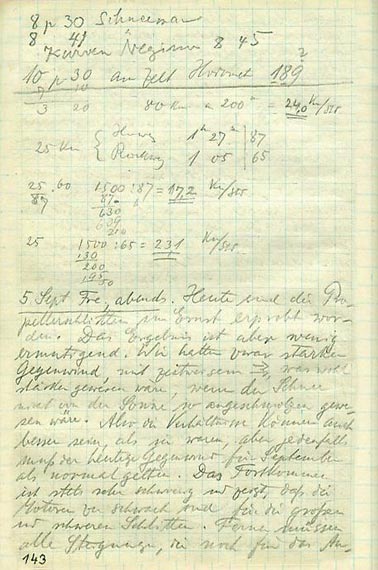 8 p 30 Schneeman
8 41
Kurven Region 8 45
10 p 30 an Feld Horonet 189
3 20 80 Km = 200 = 24,0 Km/
25 Km { Hinweg 1h 27m | 87
Rückweg 1 05 | 65
25.60 1500 : 87 = 17,2 Km/
87 87
630
609
210
25 1500 : 65 = 23,1 Km/
130
200
195
50
5 Sept Fr., abends. Heute sind die Pro-
pellerschlitten im Ernst erprobt wor-
den. Das Ergebnis ist aber wenig
ermutigend. Wir hatten zwar starken
Gegenwind, mit zeitweisem was wohl
stärker gewesen wäre, wenn der Schnee
nicht von der Sonne so angeschmolzen gewe-
sen wäre. Also die Verhältnisse können auch
besser sein, als sie waren, aber jedenfalls
muß der heutige Gegenwind für September
als normal gelten. Das Fortkommen
ist stets sehr schwierig und zeigt, daß die
Motoren zu schwach sind für die großen
und schweren Schlitten. Ferner müssen
alle Steigungen, die noch für das An-
143